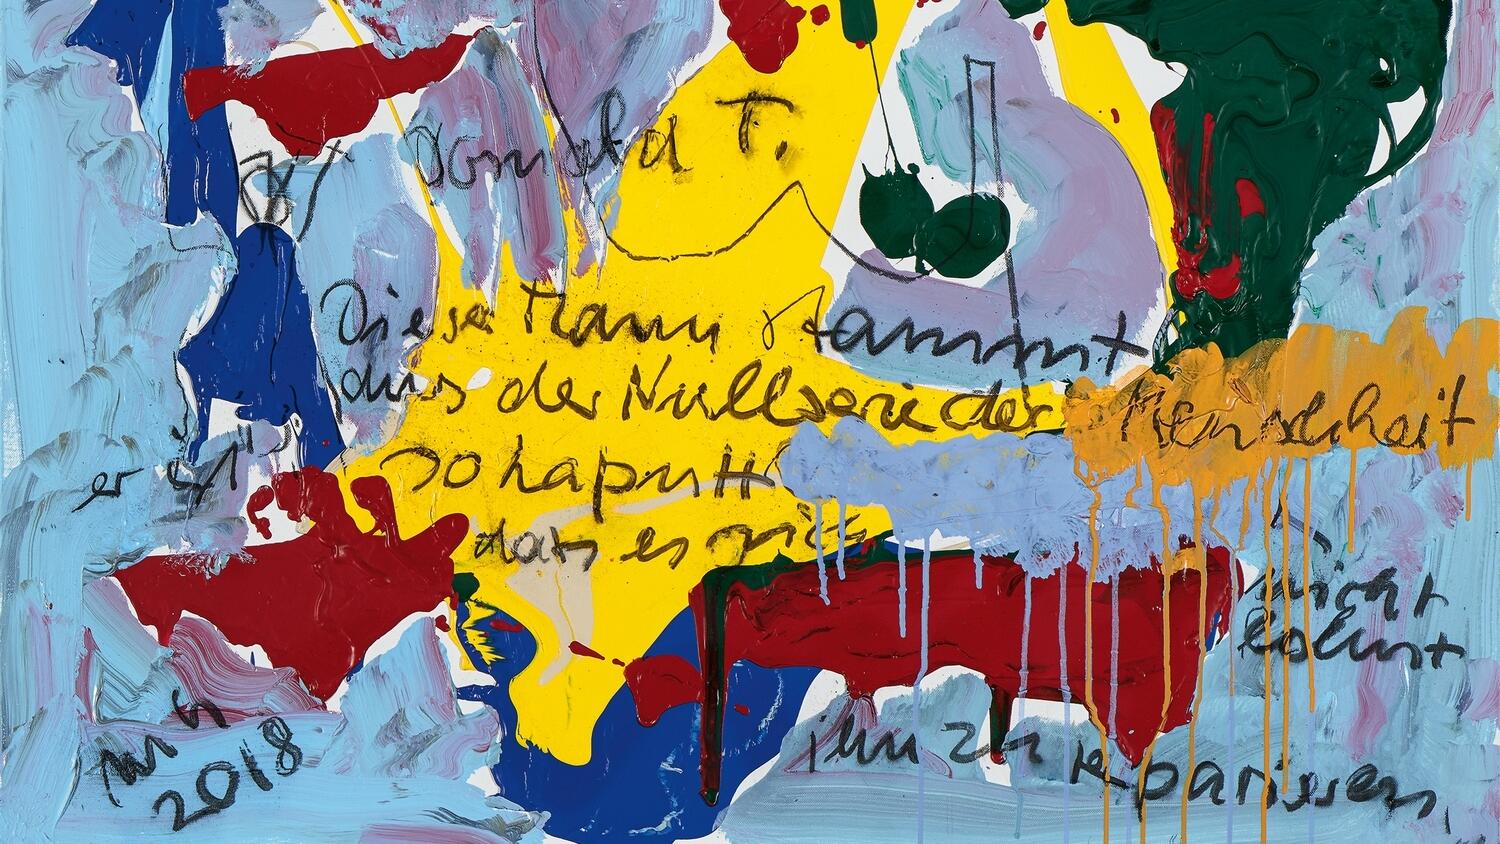 Donald T.
Dieser Mann stammt
aus der Nullserie der Menschheit
er ist
so kaputt
dass es sich
nicht
lohnt
ihn zu reparieren,
2018